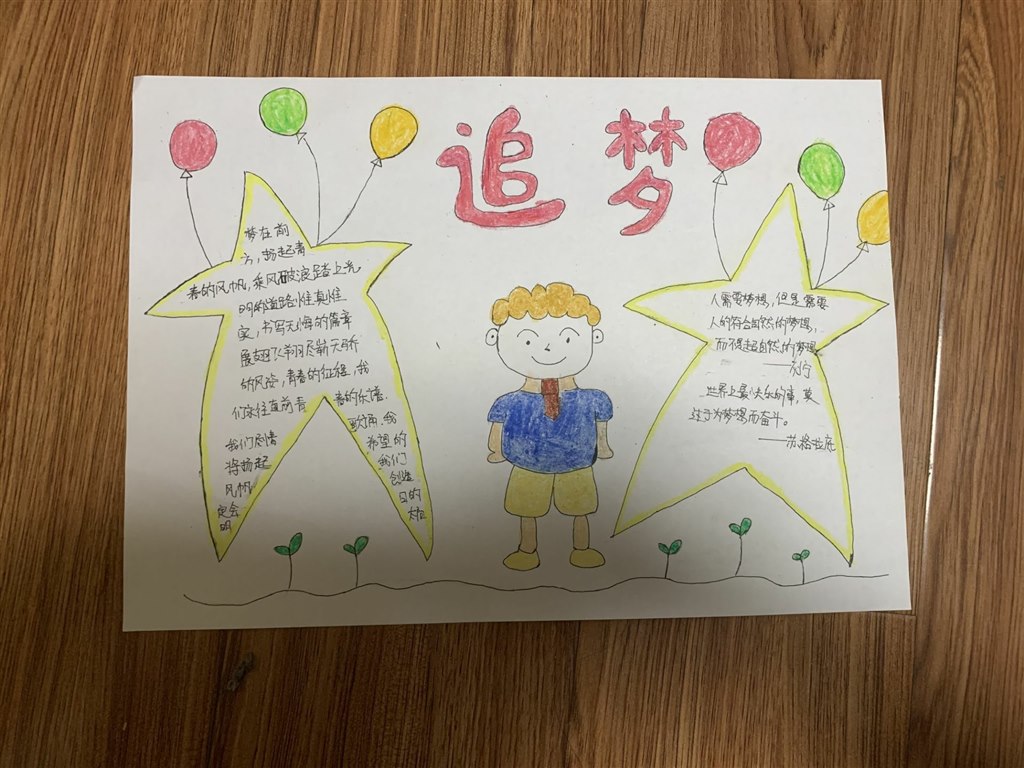 追梦
梦在前
方，扬起青
春的风帆，乘风破浪踏上光
明的道路，惟真惟
实，书写无悔的篇章
展翅飞翔羽尽新天骄
的风姿，青春的征程，我
们永往直前青
春的乐谱
我们尽情
将扬起
风帆
定会
明
歌颂，我
希望的
我们
创造
日的
人需要梦想，但是需要
人的符合自然的梦想，
而不是超自然的梦想
——列宁
世界上最快乐的事，莫
过于为梦想而奋斗。
——苏格拉底